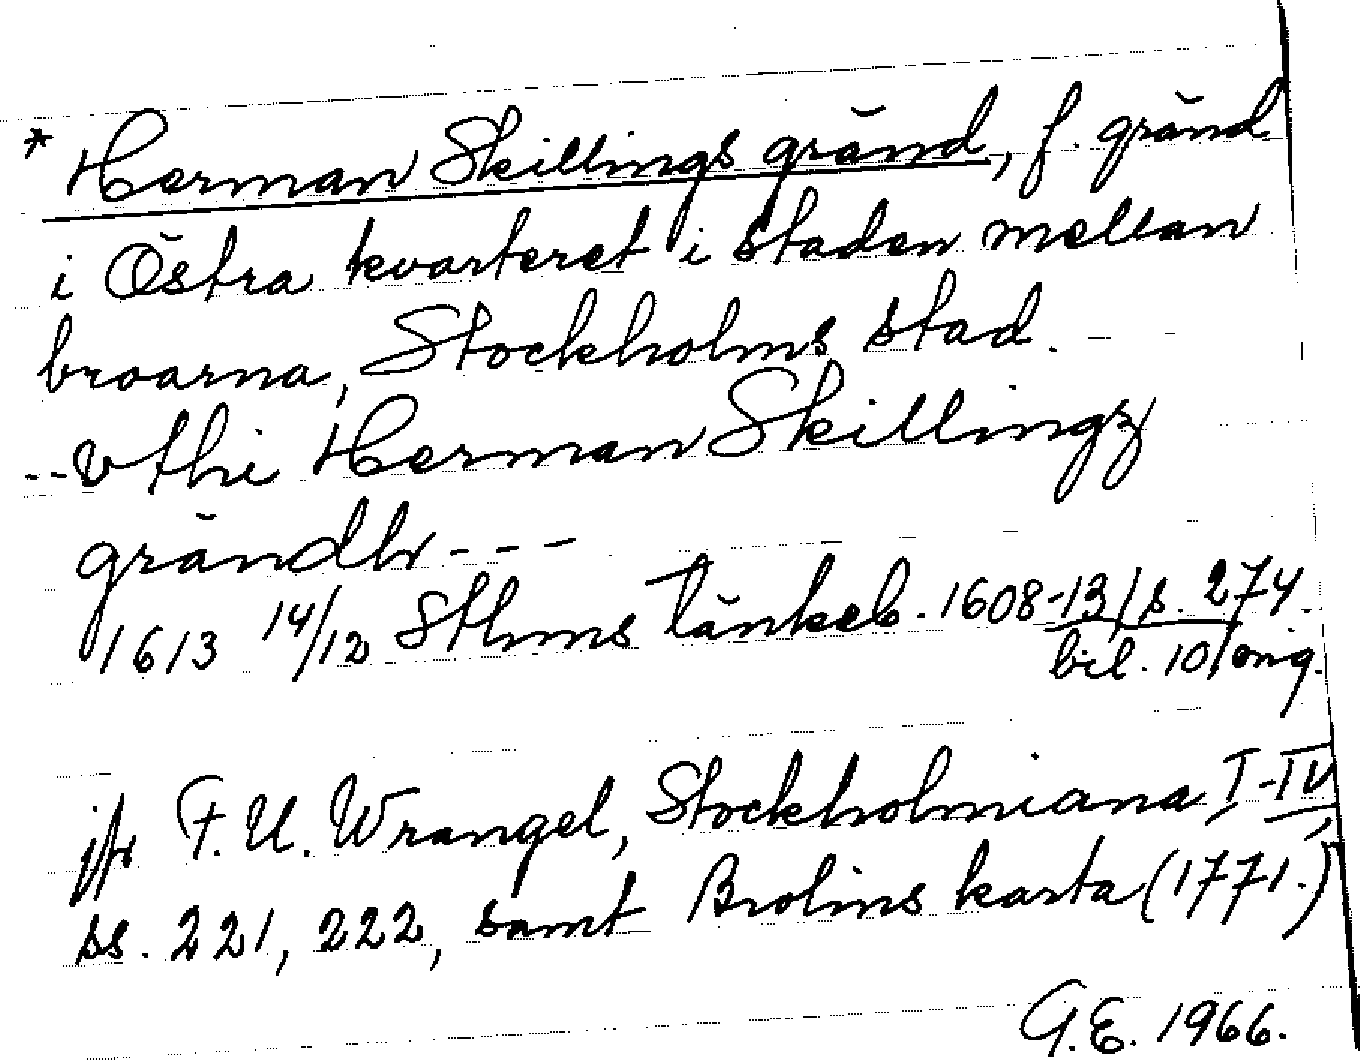 * Herman Skillings gränd, f. gränd
i Östra kvarteret i staden mellan
broarna, Stockholms stad. -
-- Vthi Herman Skillingz
grändh - - -
1613 14/12 Sthms tänkeb. 1608-13/s. 274
bil. 10/orig.
jfr F. U. Wrangel, Stockholmiana I-IV,
ss. 221, 222, samt Brolins karta (1771.)
G.E. 1966.